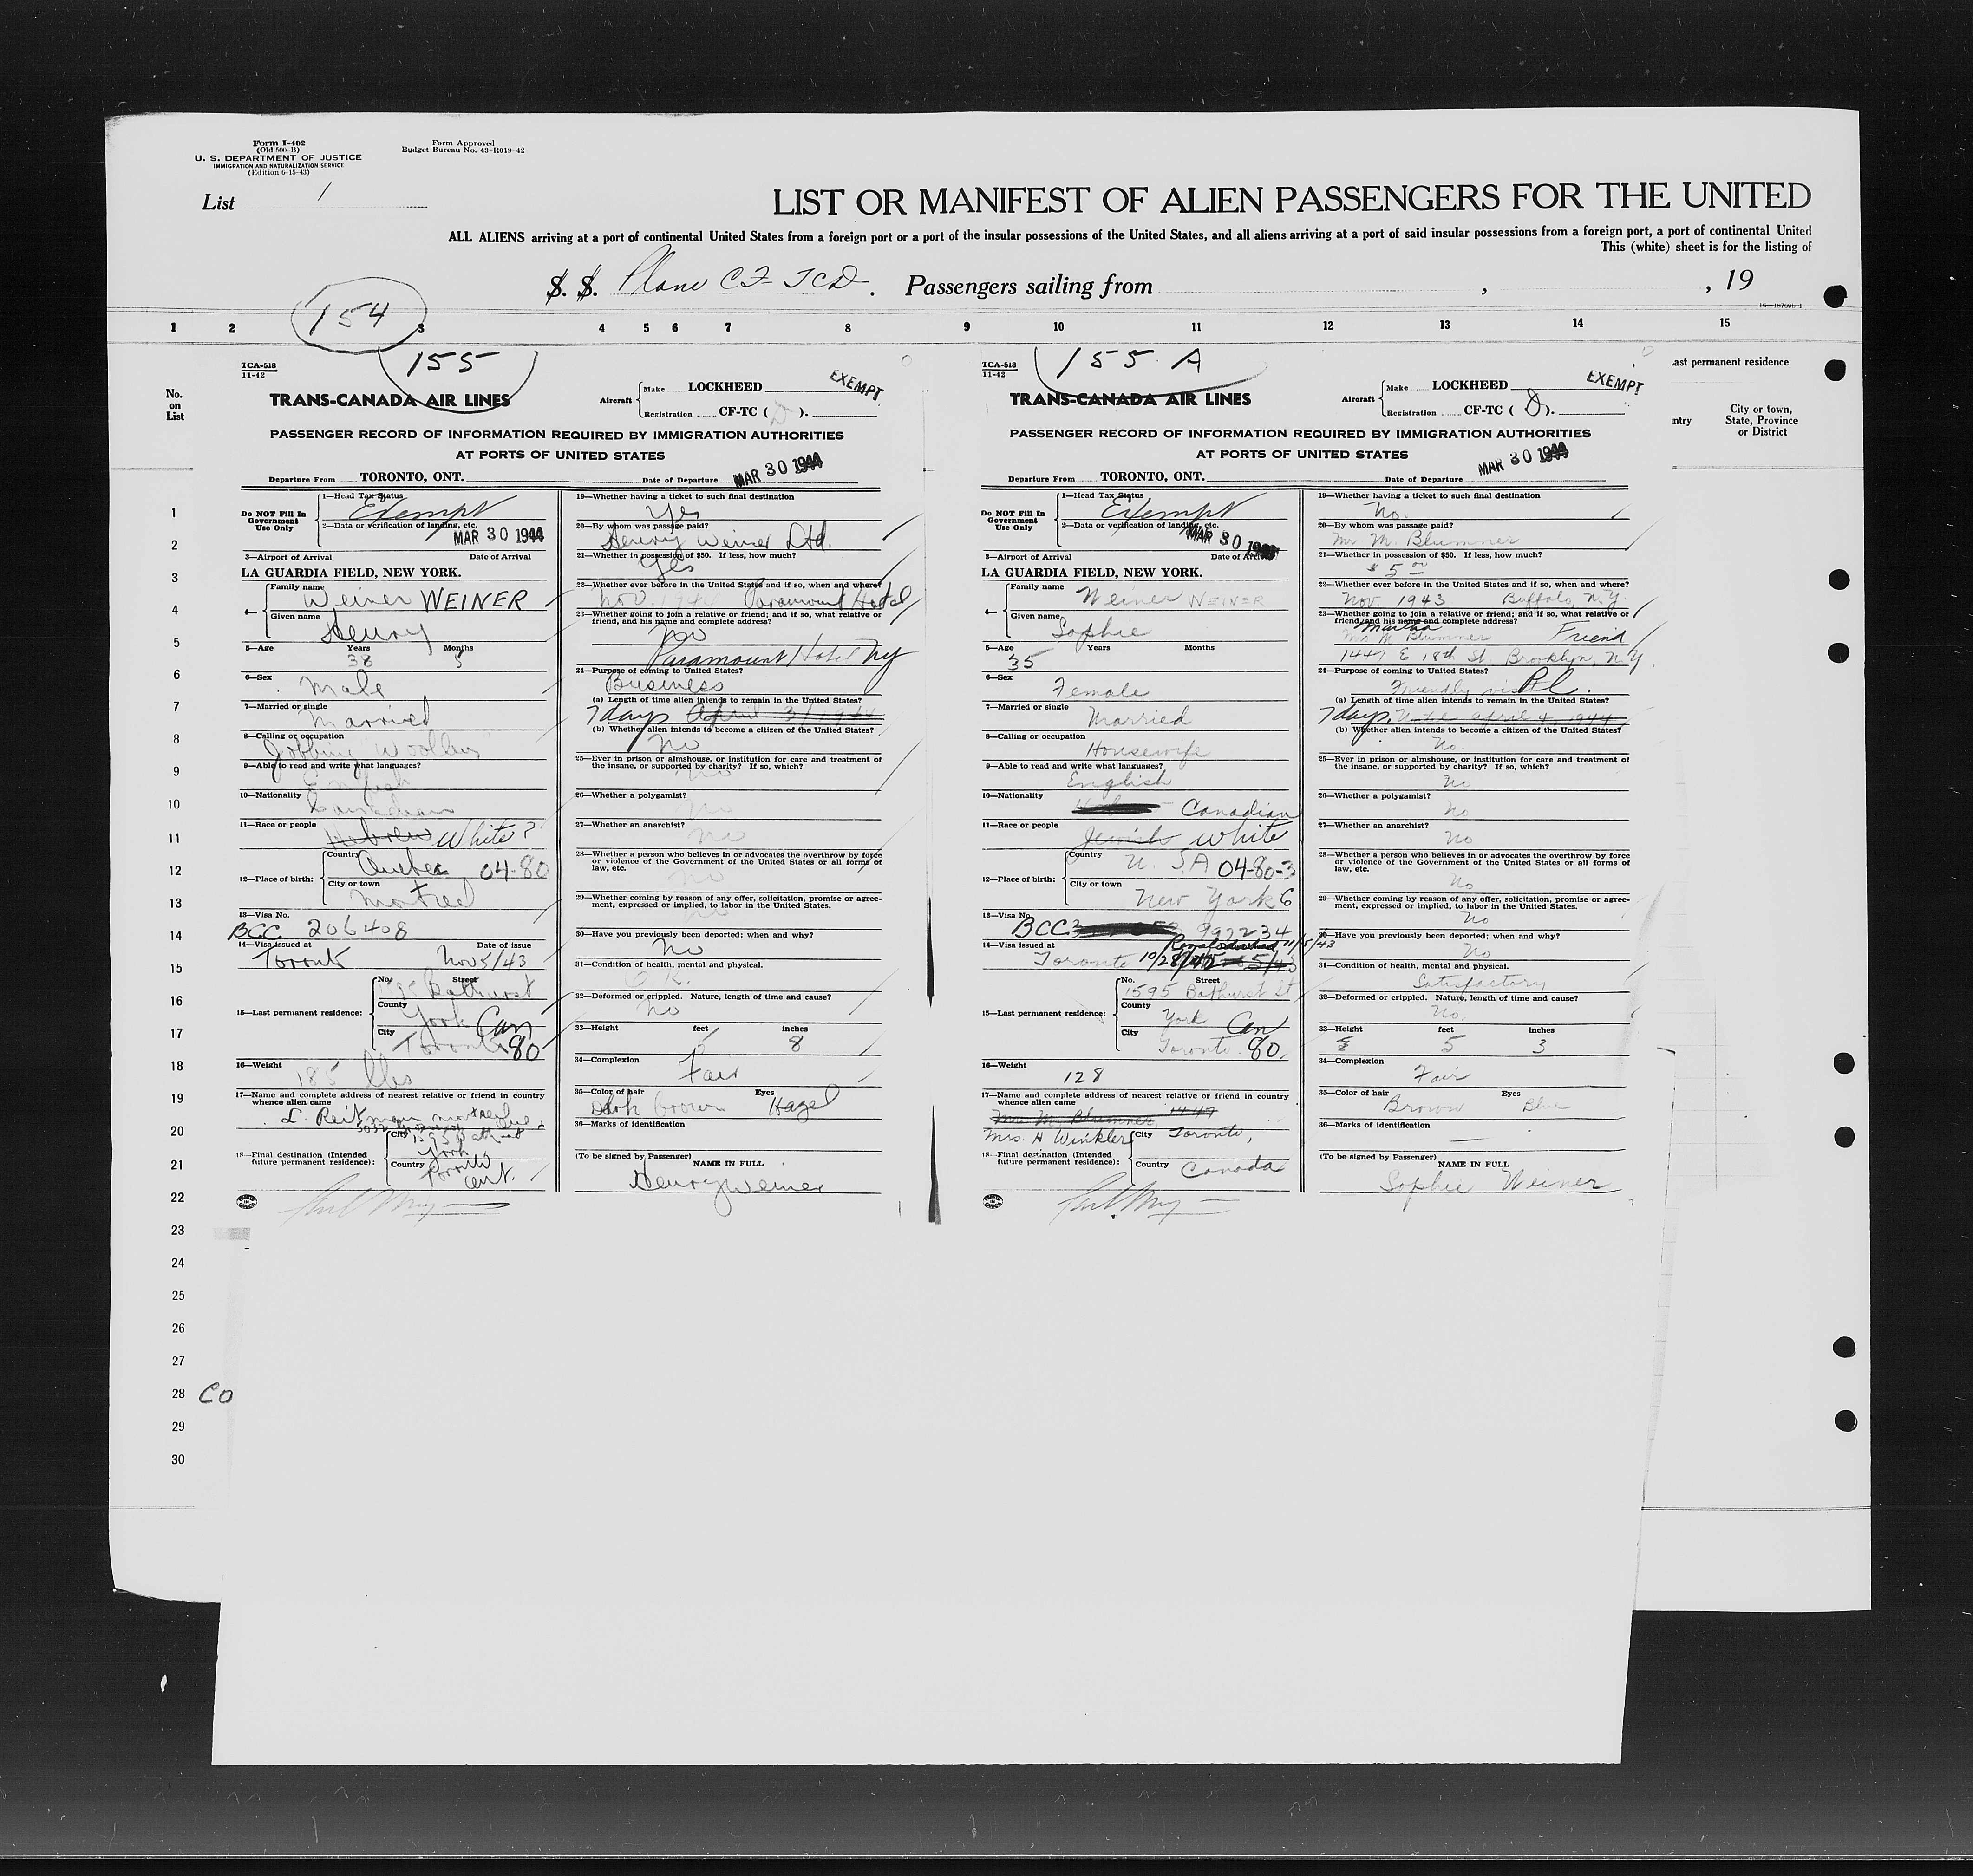 Form I-402
(Old 500-B)
U. S. DEPARTMENT OF JUSTICE
IMMIGRATION AND NATURALIZATION SERVICE
(Edition 6-15-43)
Form Approved
Budget Bureau No. 43-R019-42
List 1
LIST OR MANIFEST OF ALIEN PASSENGERS FOR THE UNITED
ALL ALIENS arriving at a port of continental United States from a foreign port or a port of the insular possessions of the United States, and all aliens arriving at a port of said insular possessions from a foreign port, a port of continental United
This (white) sheet is for the listing of
S. S. Plane CF-TCD. Passengers sailing from , , 19
154
1 2 3 4 5 6 7 8 9 10 11 12 13 14 15
No.
on
List
ast permanent residence
ntry
City or town,
State, Province
or District
1
2
3
4
5
6
7
8
9
10
11
12
13
14
15
16
17
18
19
20
21
22
23
24
25
26
27
28 CO
29
30
TCA-518
11-42
155
TRANS-CANADA AIR LINES
Aircraft Make LOCKHEED
Registration CF-TC ( D ).
EXEMPT
PASSENGER RECORD OF INFORMATION REQUIRED BY IMMIGRATION AUTHORITIES
AT PORTS OF UNITED STATES
Departure From TORONTO, ONT. Date of Departure MAR 30 1944
Do NOT Fill In
Government
Use Only
1—Head Tax Status
Exempt
2—Data or verification of landing, etc.
MAR 30 1944
3—Airport of Arrival Date of Arrival
LA GUARDIA FIELD, NEW YORK.
4— Family name Weiner WEINER
Given name Henry
5—Age Years Months
38 5
6—Sex
Male
7—Married or single
Married
8—Calling or occupation
Jobbing Woollens
9—Able to read and write what languages?
English
10—Nationality
Canadian
11—Race or people
Hebrew White?
12—Place of birth: Country Quebec 04-80
City or town Montreal
13—Visa No.
BCC 206408
14—Visa issued at Date of issue
Toronto Nov 5/43
15—Last permanent residence: No. Street
Bathurst
County
York Can
City
Toronto 80
16—Weight
185 lbs
17—Name and complete address of nearest relative or friend in country
whence alien came
L. Reitman Montreal Que
18—Final destination (Intended
future permanent residence): City
1595 Bathurst
York
Country
Toronto
Ont.
19—Whether having a ticket to such final destination
Yes
20—By whom was passage paid?
Henry Weiner Ltd.
21—Whether in possession of $50. If less, how much?
Yes
22—Whether ever before in the United States and if so, when and where?
Nov. Paramount Hotel
23—Whether going to join a relative or friend; and if so, what relative or
friend, and his name and complete address?
No
Paramount Hotel NY
24—Purpose of coming to United States?
Business
(a) Length of time alien intends to remain in the United States?
7 days April 3/1944
(b) Whether alien intends to become a citizen of the United States?
No
25—Ever in prison or almshouse, or institution for care and treatment of
the insane, or supported by charity? If so, which?
No
26—Whether a polygamist?
No
27—Whether an anarchist?
No
28—Whether a person who believes in or advocates the overthrow by force
or violence of the Government of the United States or all forms of
law, etc.
No
29—Whether coming by reason of any offer, solicitation, promise or agree-
ment, expressed or implied, to labor in the United States.
No
30—Have you previously been deported; when and why?
No
31—Condition of health, mental and physical.
O.K.
32—Deformed or crippled. Nature, length of time and cause?
No
33—Height feet inches
5 8
34—Complexion
Fair
35—Color of hair Eyes
Dark brown Hazel
36—Marks of identification
(To be signed by Passenger)
NAME IN FULL
Henry Weiner
TCA-518
11-42
155 A
TRANS-CANADA AIR LINES
Aircraft Make LOCKHEED
Registration CF-TC ( D ).
EXEMPT
PASSENGER RECORD OF INFORMATION REQUIRED BY IMMIGRATION AUTHORITIES
AT PORTS OF UNITED STATES
Departure From TORONTO, ONT. Date of Departure MAR 30 1944
Do NOT Fill In
Government
Use Only
1—Head Tax Status
Exempt
2—Data or verification of landing, etc.
MAR 30 1944
3—Airport of Arrival Date of Arrival
LA GUARDIA FIELD, NEW YORK.
4— Family name Weiner WEINER
Given name Sophie
5—Age Years Months
35
6—Sex
Female
7—Married or single
Married
8—Calling or occupation
Housewife
9—Able to read and write what languages?
English
10—Nationality
Canadian
11—Race or people
Jewish White
12—Place of birth: Country U.S.A 04-80-3
City or town New York 6
13—Visa No.
BCC 992234
14—Visa issued at
Toronto 10/28/42 5/43 11/5/43
15—Last permanent residence: No. Street
1595 Bathurst St
County
York Can
City
Toronto 80
16—Weight
128
17—Name and complete address of nearest relative or friend in country
whence alien came
Mrs M. Blumner 1447
Mrs. H Winkler
18—Final destination (Intended
future permanent residence): City Toronto,
Country Canada
19—Whether having a ticket to such final destination
No.
20—By whom was passage paid?
Mr M. Blumner
21—Whether in possession of $50. If less, how much?
$5.00
22—Whether ever before in the United States and if so, when and where?
Nov. 1943 Buffalo, N.Y.
23—Whether going to join a relative or friend; and if so, what relative or
friend, and his name and complete address?
Martha
Mrs M Blumner Friend
1447 E 18th St. Brooklyn, N.Y.
24—Purpose of coming to United States?
Friendly visit Pl.
(a) Length of time alien intends to remain in the United States?
7 days, Until April 4, 1944
(b) Whether alien intends to become a citizen of the United States?
No.
25—Ever in prison or almshouse, or institution for care and treatment of
the insane, or supported by charity? If so, which?
No
26—Whether a polygamist?
No
27—Whether an anarchist?
No
28—Whether a person who believes in or advocates the overthrow by force
or violence of the Government of the United States or all forms of
law, etc.
No
29—Whether coming by reason of any offer, solicitation, promise or agree-
ment, expressed or implied, to labor in the United States.
No
30—Have you previously been deported; when and why?
No
31—Condition of health, mental and physical.
Satisfactory
32—Deformed or crippled. Nature, length of time and cause?
No.
33—Height feet inches
5 3
34—Complexion
Fair
35—Color of hair Eyes
Brown Blue
36—Marks of identification
—
(To be signed by Passenger)
NAME IN FULL
Sophie Weiner